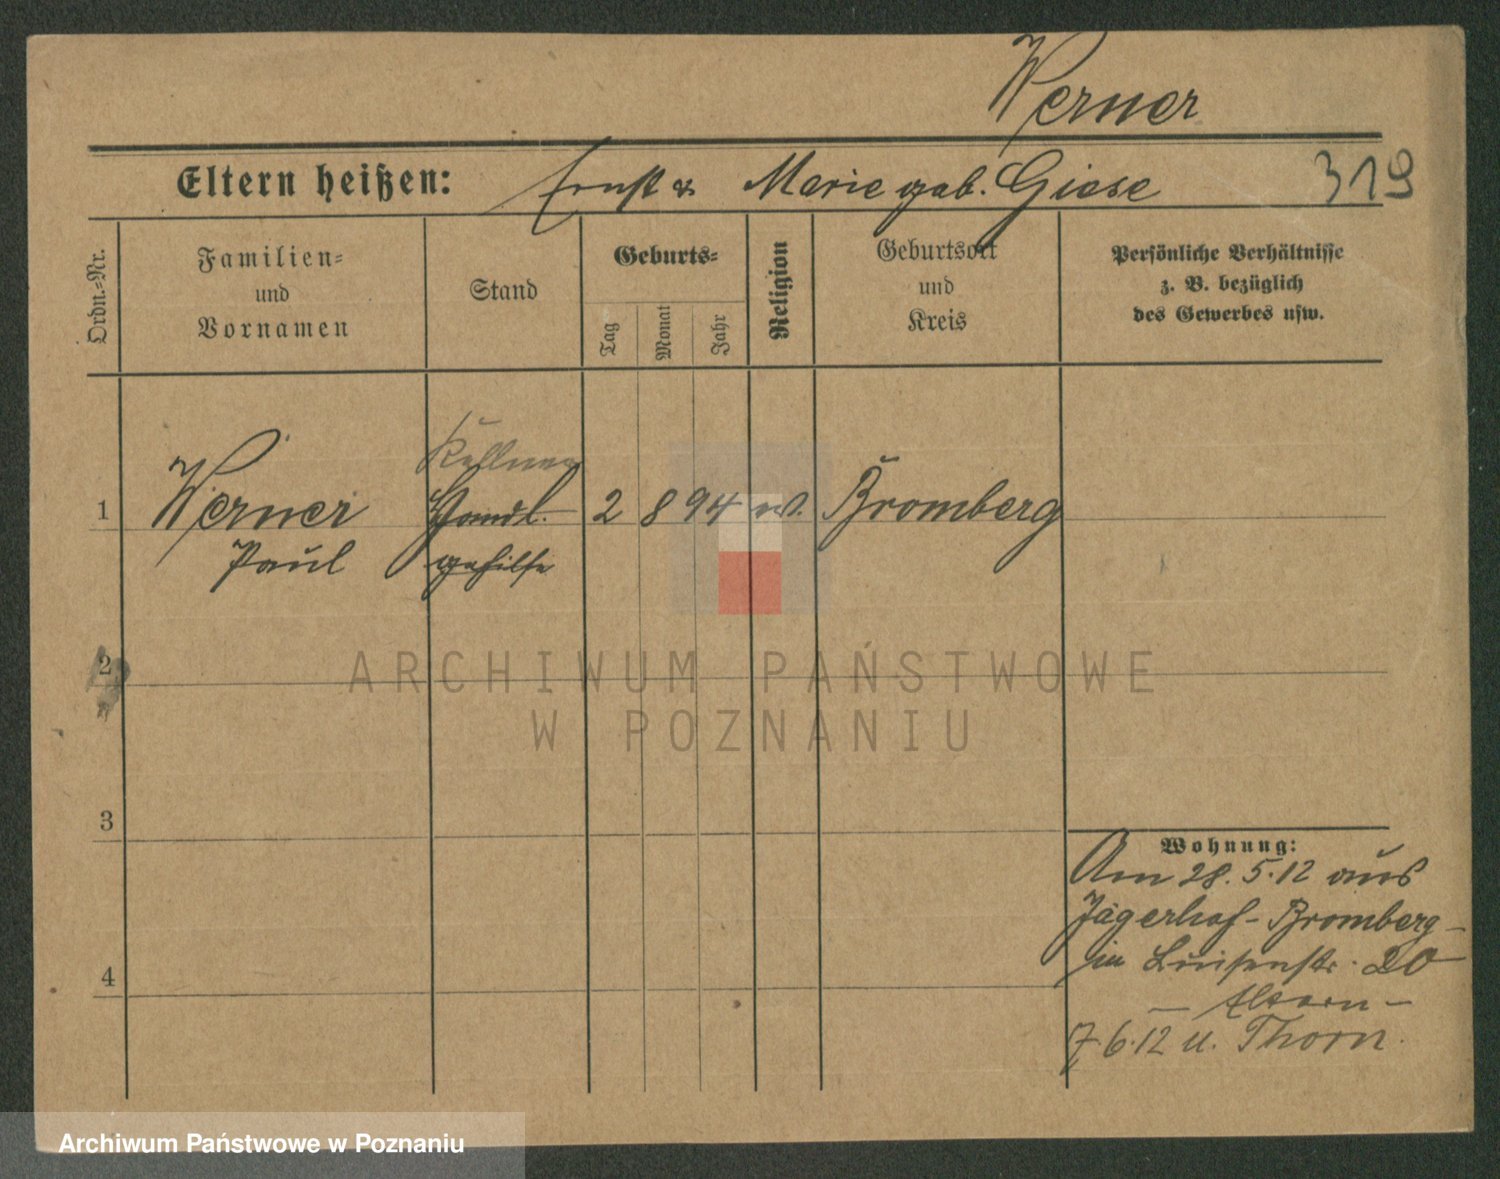 Werner
Eltern heißen: Ernst u. Marie geb. Giese 319
Ordn.-Nr.
Familien-
und
Vornamen
Stand
Geburts-
Tag
Monat
Jahr
Religion
Geburtsort
und
Kreis
Persönliche Verhältnisse
z. B. bezüglich
des Gewerbes usw.
Kellner
1 Werner Handl. 2 8 94 ev. Bromberg
Paul gehilfe
2
3
4
Wohnung:
Am 28.5.12 aus
Jägerhof - Bromberg -
in Luisenstr. 20
- Eltern -
7.6.12 n. Thorn.
ARCHIWUM PAŃSTWOWE
W POZNANIU
Archiwum Państwowe w Poznaniu